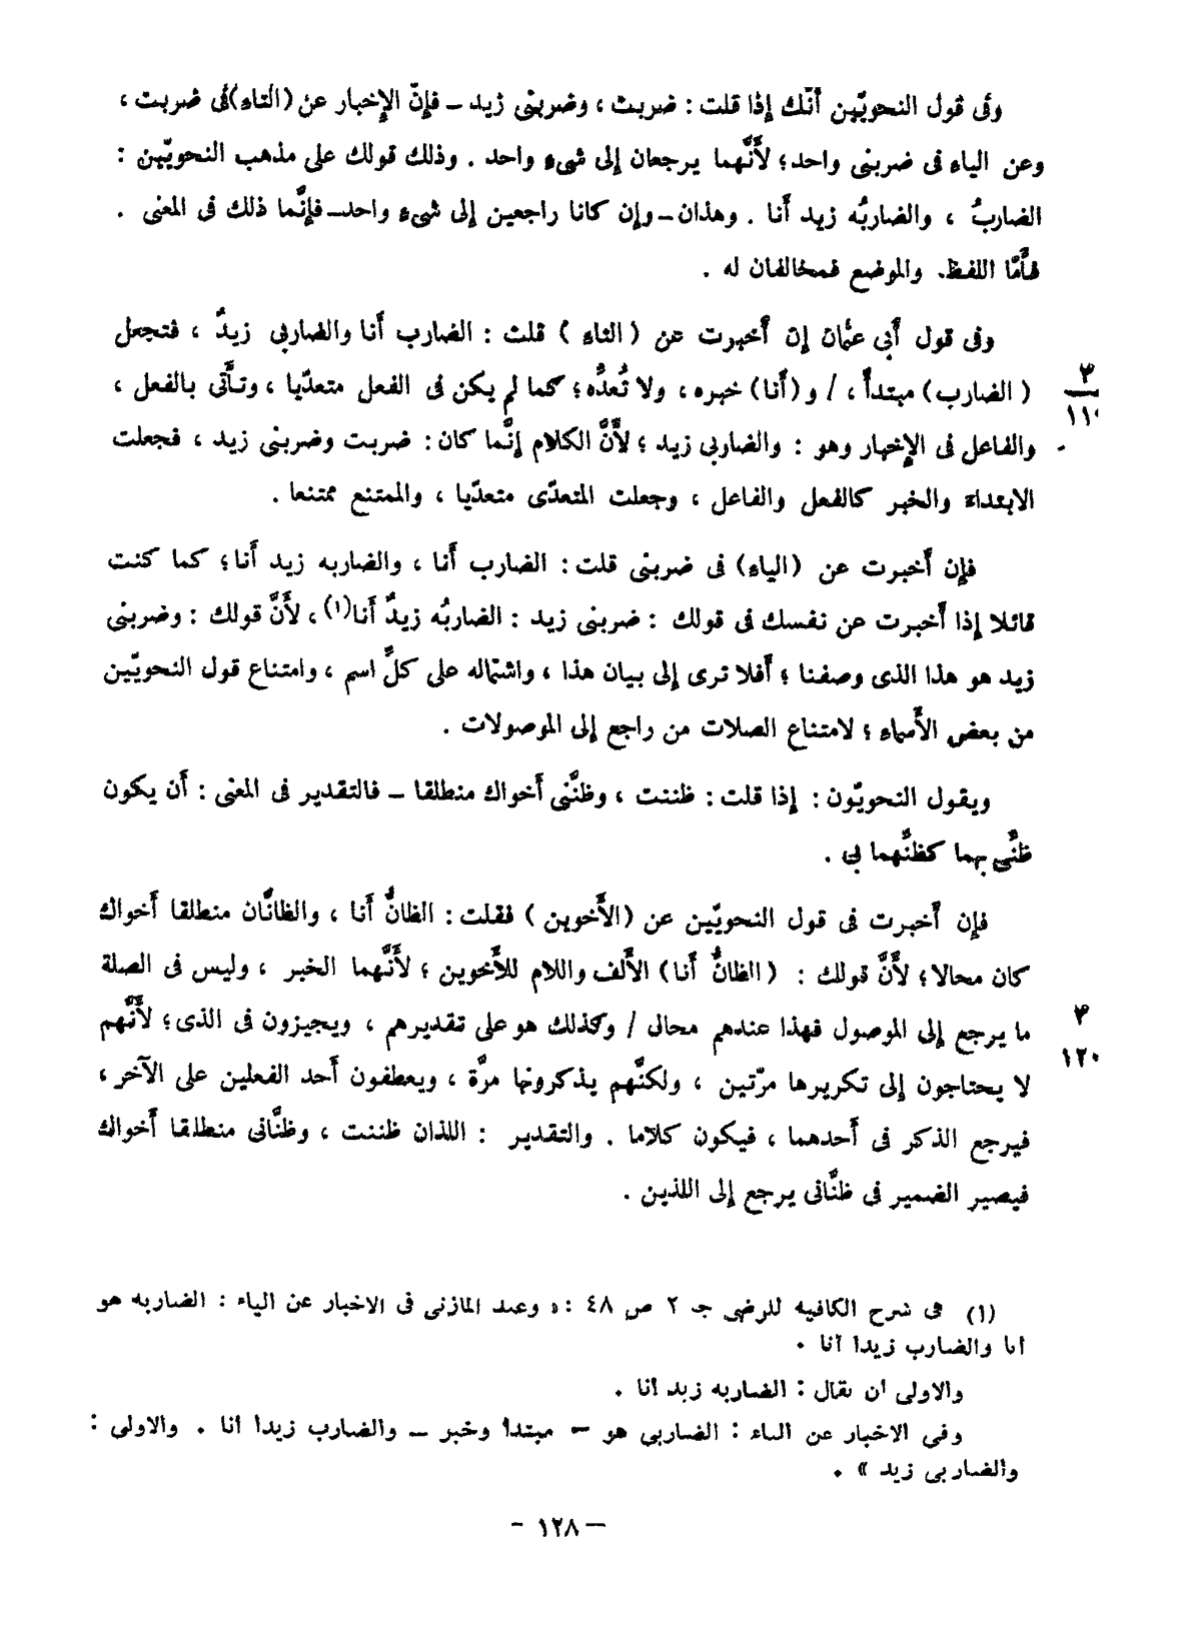 وفى قول النحويّين أنّك إذا قلت : ضربت ، وضربنى زيد – فإنّ الإخبار عن (التاء)فى ضربت ،
وعن الياء فى ضربنى واحد؛ لأَنَّهما يرجعان إلى شىء واحد . وذلك قولك على مذهب النحويّين :
الضاربُ ، والضاربُه زيد أَنا . وهذان–وإن كانا راجعين إلى شىء واحد–فإنَّما ذلك فى المعنى .
فأَمَّا اللفظ. والموضع فمخالفان له .
وفى قول أَبى عثمان إن أَخبرت عن ( التاء ) قلت : الضارب أَنا والضاربى زيدٌ ، فتجعل
( الضارب) مبتدأً ، / و (أَنا) خبره ، ولا تُعدُّه؛ كما لم يكن فى الفعل متعدّيا ، وتأْتى بالفعل ،
٣
١١٠
والفاعل فى الإخبار وهو : والضاربى زيد ؛ لأَنَّ الكلام إنَّما كان : ضربت وضربنى زيد ، فجعلت
الابتداءَ والخبر كالفعل والفاعل ، وجعلت المتعدّى متعدّيا ، والممتنع ممتنعا .
فإن أَخبرت عن (الياء) فى ضربنى قلت : الضارب أَنا ، والضاربه زيد أَنا؛ كما كنت
قائلا إذا أَخبرت عن نفسك فى قولك : ضربنى زيد : الضاربُه زيدٌ أَنا(١) ، لأَنَّ قولك : وضربنى
زيد هو هذا الذى وصفنا ؛ أَفلا ترى إلى بيان هذا ، واشتماله على كلِّ اسم ، وامتناع قول النحويّين
من بعض الأَسماء ؛ لامتناع الصلات من راجع إلى الموصولات .
ويقول النحويّون : إذا قلت : ظننت ، وظنَّنى أَخواك منطلقا – فالتقدير فى المعنى : أَن يكون
ظنَّى بهما كظنِّهما بى .
فإن أَخبرت فى قول النحويّين عن (الأَخوين ) فقلت : الظانُّ أَنا ، والظانَّان منطلقا أَخواك
كان محالا؛ لأَنَّ قولك : ( الظانُّ أَنا) الأَلف واللام للأَخوين ؛ لأَنَّهما الخبر ، وليس فى الصلة
ما يرجع إلى الموصول فهذا عندهم محال / وكذلك هو على تقديرهم ، ويجيزون فى الذى؛ لأَنَّهم
٣
١٢٠
لا يحتاجون إلى تكريرها مرّتين ، ولكنَّهم يذكرونها مرَّة ، ويعطفون أَحد الفعلين على الآخر ،
فيرجع الذكر فى أَحدهما ، فيكون كلاما . والتقدير : اللذان ظننت ، وظنَّانى منطلقا أَخواك
فيصير الضمير فى ظنَّانى يرجع إلى اللذين .
(١) فى شرح الكافيه للرضى جـ ٢ ص ٤٨ : « وعند المازنى فى الاخبار عن الياء : الضاربه هو
انا والضارب زيدا انا .
والاولى ان يقال : الضاربه زيد انا .
وفى الاخبار عن الياء : الضاربى هو – مبتدا وخبر – والضارب زيدا انا . والاولى :
والضاربى زيد » .
– ١٢٨ –